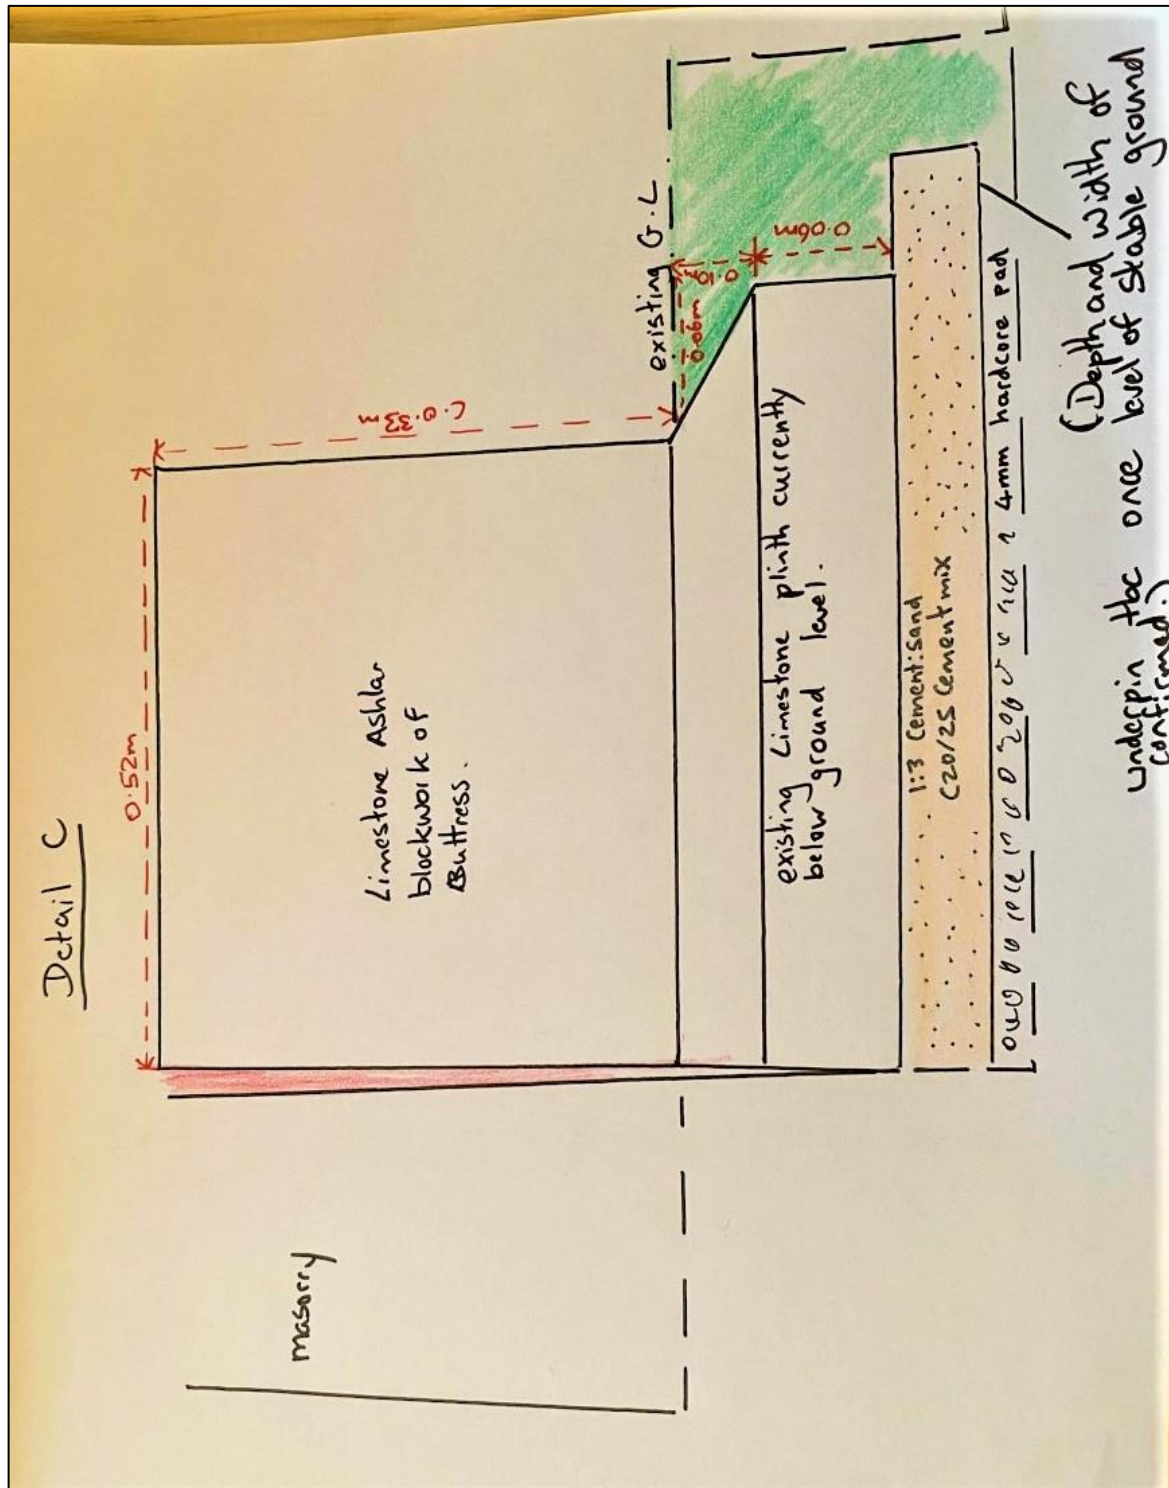 Detail C
0.52m
c.0.33m
Limestone Ashlar
blockwork of
Buttress.
masorry
existing G.L
0.06m
0.06m
existing Limestone plinth currently
below ground level.
1:3 Cement:sand
C20/25 Cement mix
4mm hardcore pad
(Depth and width of
underpin tbc once level of stable ground
confirmed.)